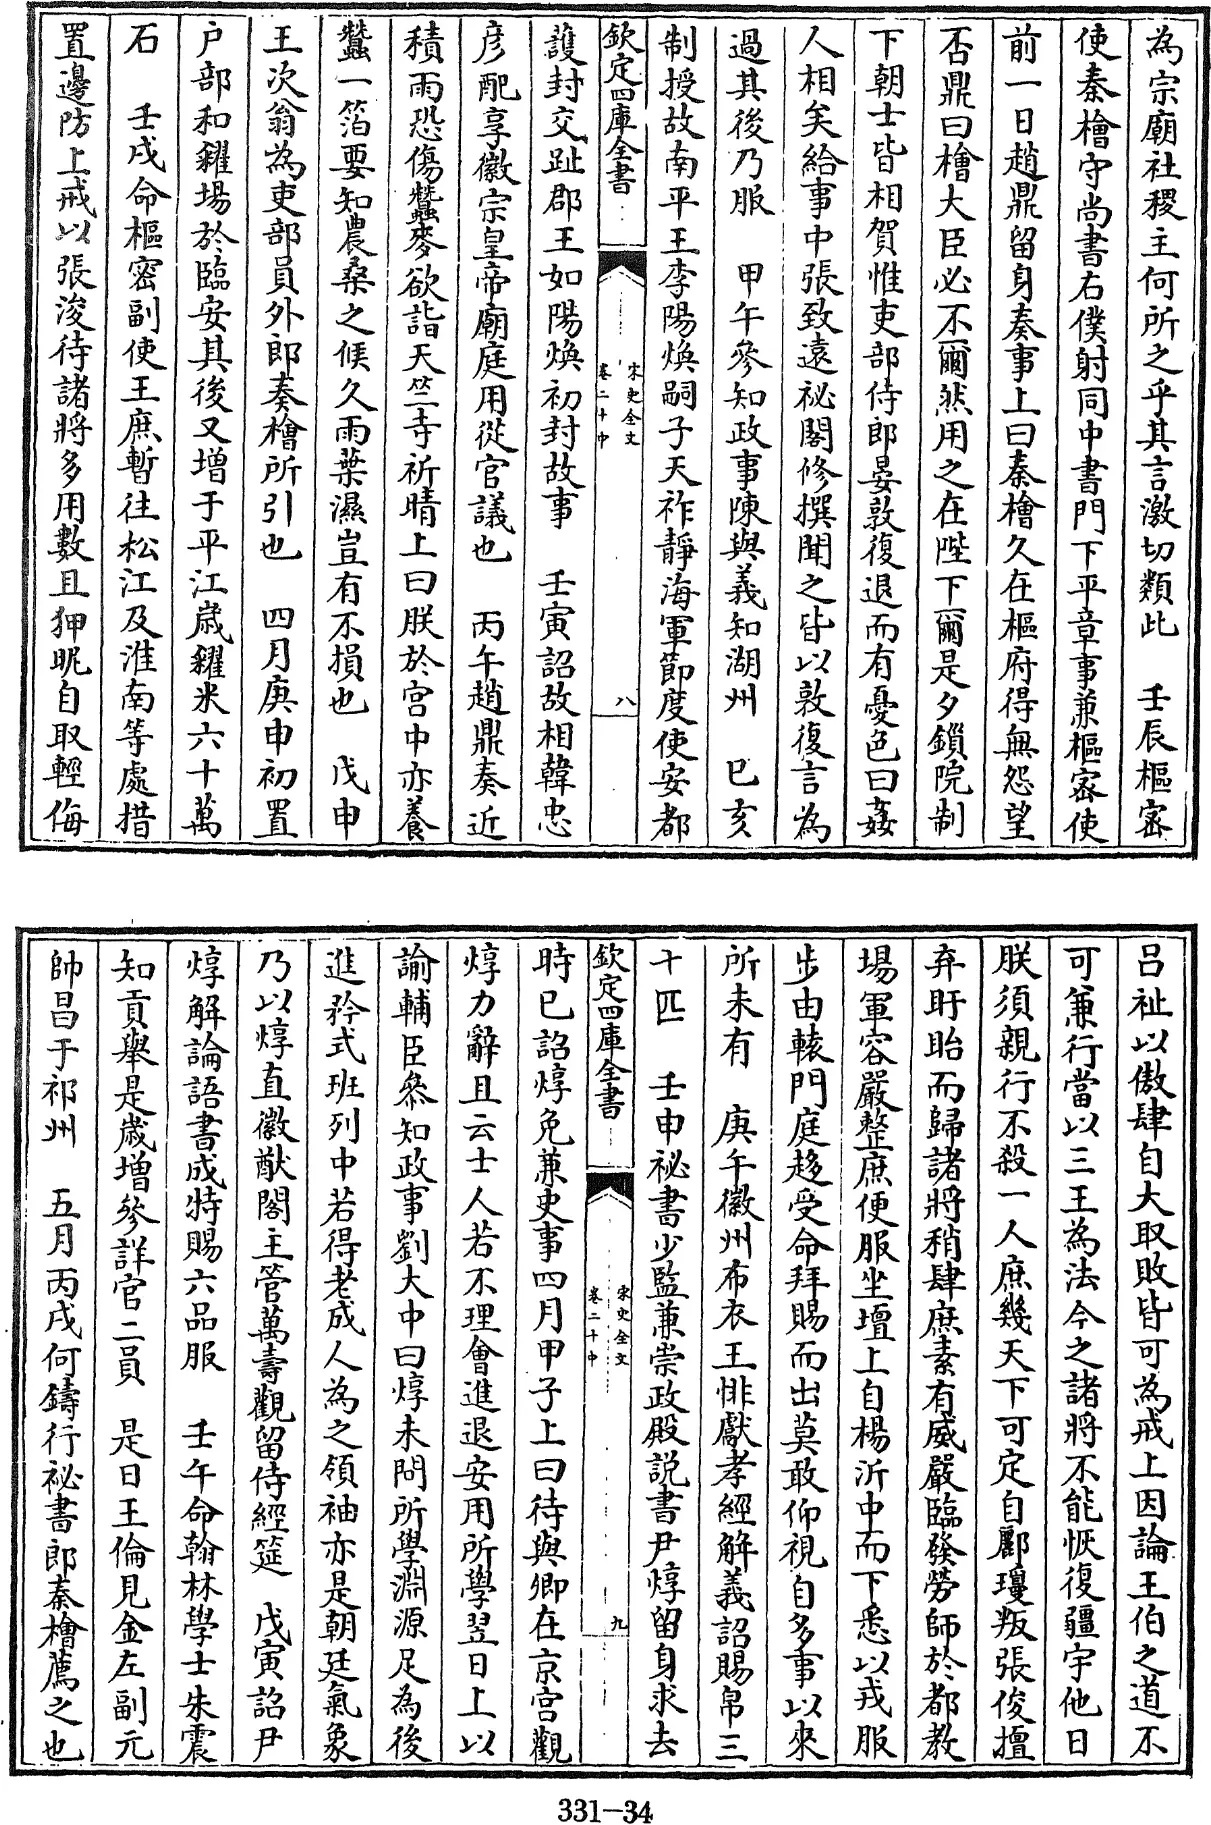 為宗廟社稷主何所之乎其言激切類此　壬辰樞密
使秦檜守尚書右僕射同中書門下平章事兼樞密使
前一日趙鼎留身奏事上曰秦檜久在樞府得無怨望
否鼎曰檜大臣必不爾然用之在陛下爾是夕鎖院制
下朝士皆相賀惟吏部侍郎晏敦復退而有憂色曰姦
人相矣給事中張致遠祕閣修撰聞之皆以敦復言為
過其後乃服　甲午參知政事陳與義知湖州　已亥
制授故南平王李陽煥嗣子天祚靜海軍節度使安都
欽定四庫全書
宋史全文
卷二十中
八
護封交趾郡王如陽煥初封故事　壬寅詔故相韓忠
彥配享徽宗皇帝廟庭用從官議也　丙午趙鼎奏近
積雨恐傷蠶麥欲詣天竺寺祈晴上曰朕於宮中亦養
蠶一箔要知農桑之候久雨葉濕豈有不損也　戊申
王次翁為吏部員外郎秦檜所引也　四月庚申初置
户部和糴場於臨安其後又增于平江歳糴米六十萬
石　壬戌命樞密副使王庶暫往松江及淮南等處措
置邊防上戒以張浚待諸將多用數且狎昵自取輕侮
呂祉以傲肆自大取敗皆可為戒上因論王伯之道不
可兼行當以三王為法今之諸將不能恢復疆宇他日
朕須親行不殺一人庶幾天下可定自酈瓊叛張俊擅
弃盱眙而歸諸將稍肆庶素有威嚴臨發勞師於都教
場軍容嚴整庶便服坐壇上自楊沂中而下悉以戎服
步由轅門庭趍受命拜賜而出莫敢仰視自多事以來
所未有　庚午徽州布衣王悱獻孝經解義詔賜帛三
十匹　壬申祕書少監兼崇政殿説書尹焞留身求去
欽定四庫全書
宋史全文
卷二十中
九
時已詔焞免兼史事四月甲子上曰待與卿在京宮觀
焞力辭且云士人若不理會進退安用所學翌日上以
諭輔臣參知政事劉大中曰焞未問所學淵源足為後
進矜式班列中若得老成人為之領袖亦是朝廷氣象
乃以焞直徽猷閣主管萬壽觀留侍經筵　戊寅詔尹
焞解論語書成特賜六品服　壬午命翰林學士朱震
知貢舉是歳增參詳官二員　是日王倫見金左副元
帥昌于祁州　五月丙戌何鑄行祕書郎秦檜薦之也
331-34